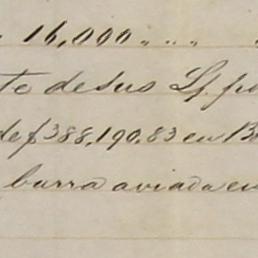 16,000 " " "
te de sus Lf. po
de f 388,190.83 en B
barra aviada en